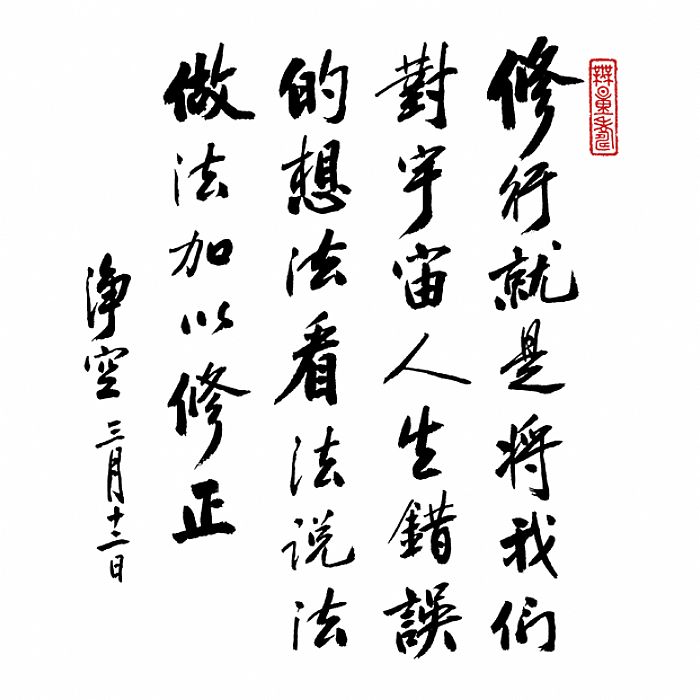 修行就是将我们
對宇宙人生錯誤
的想法看法说法
做法加以修正
淨空 三月十二日